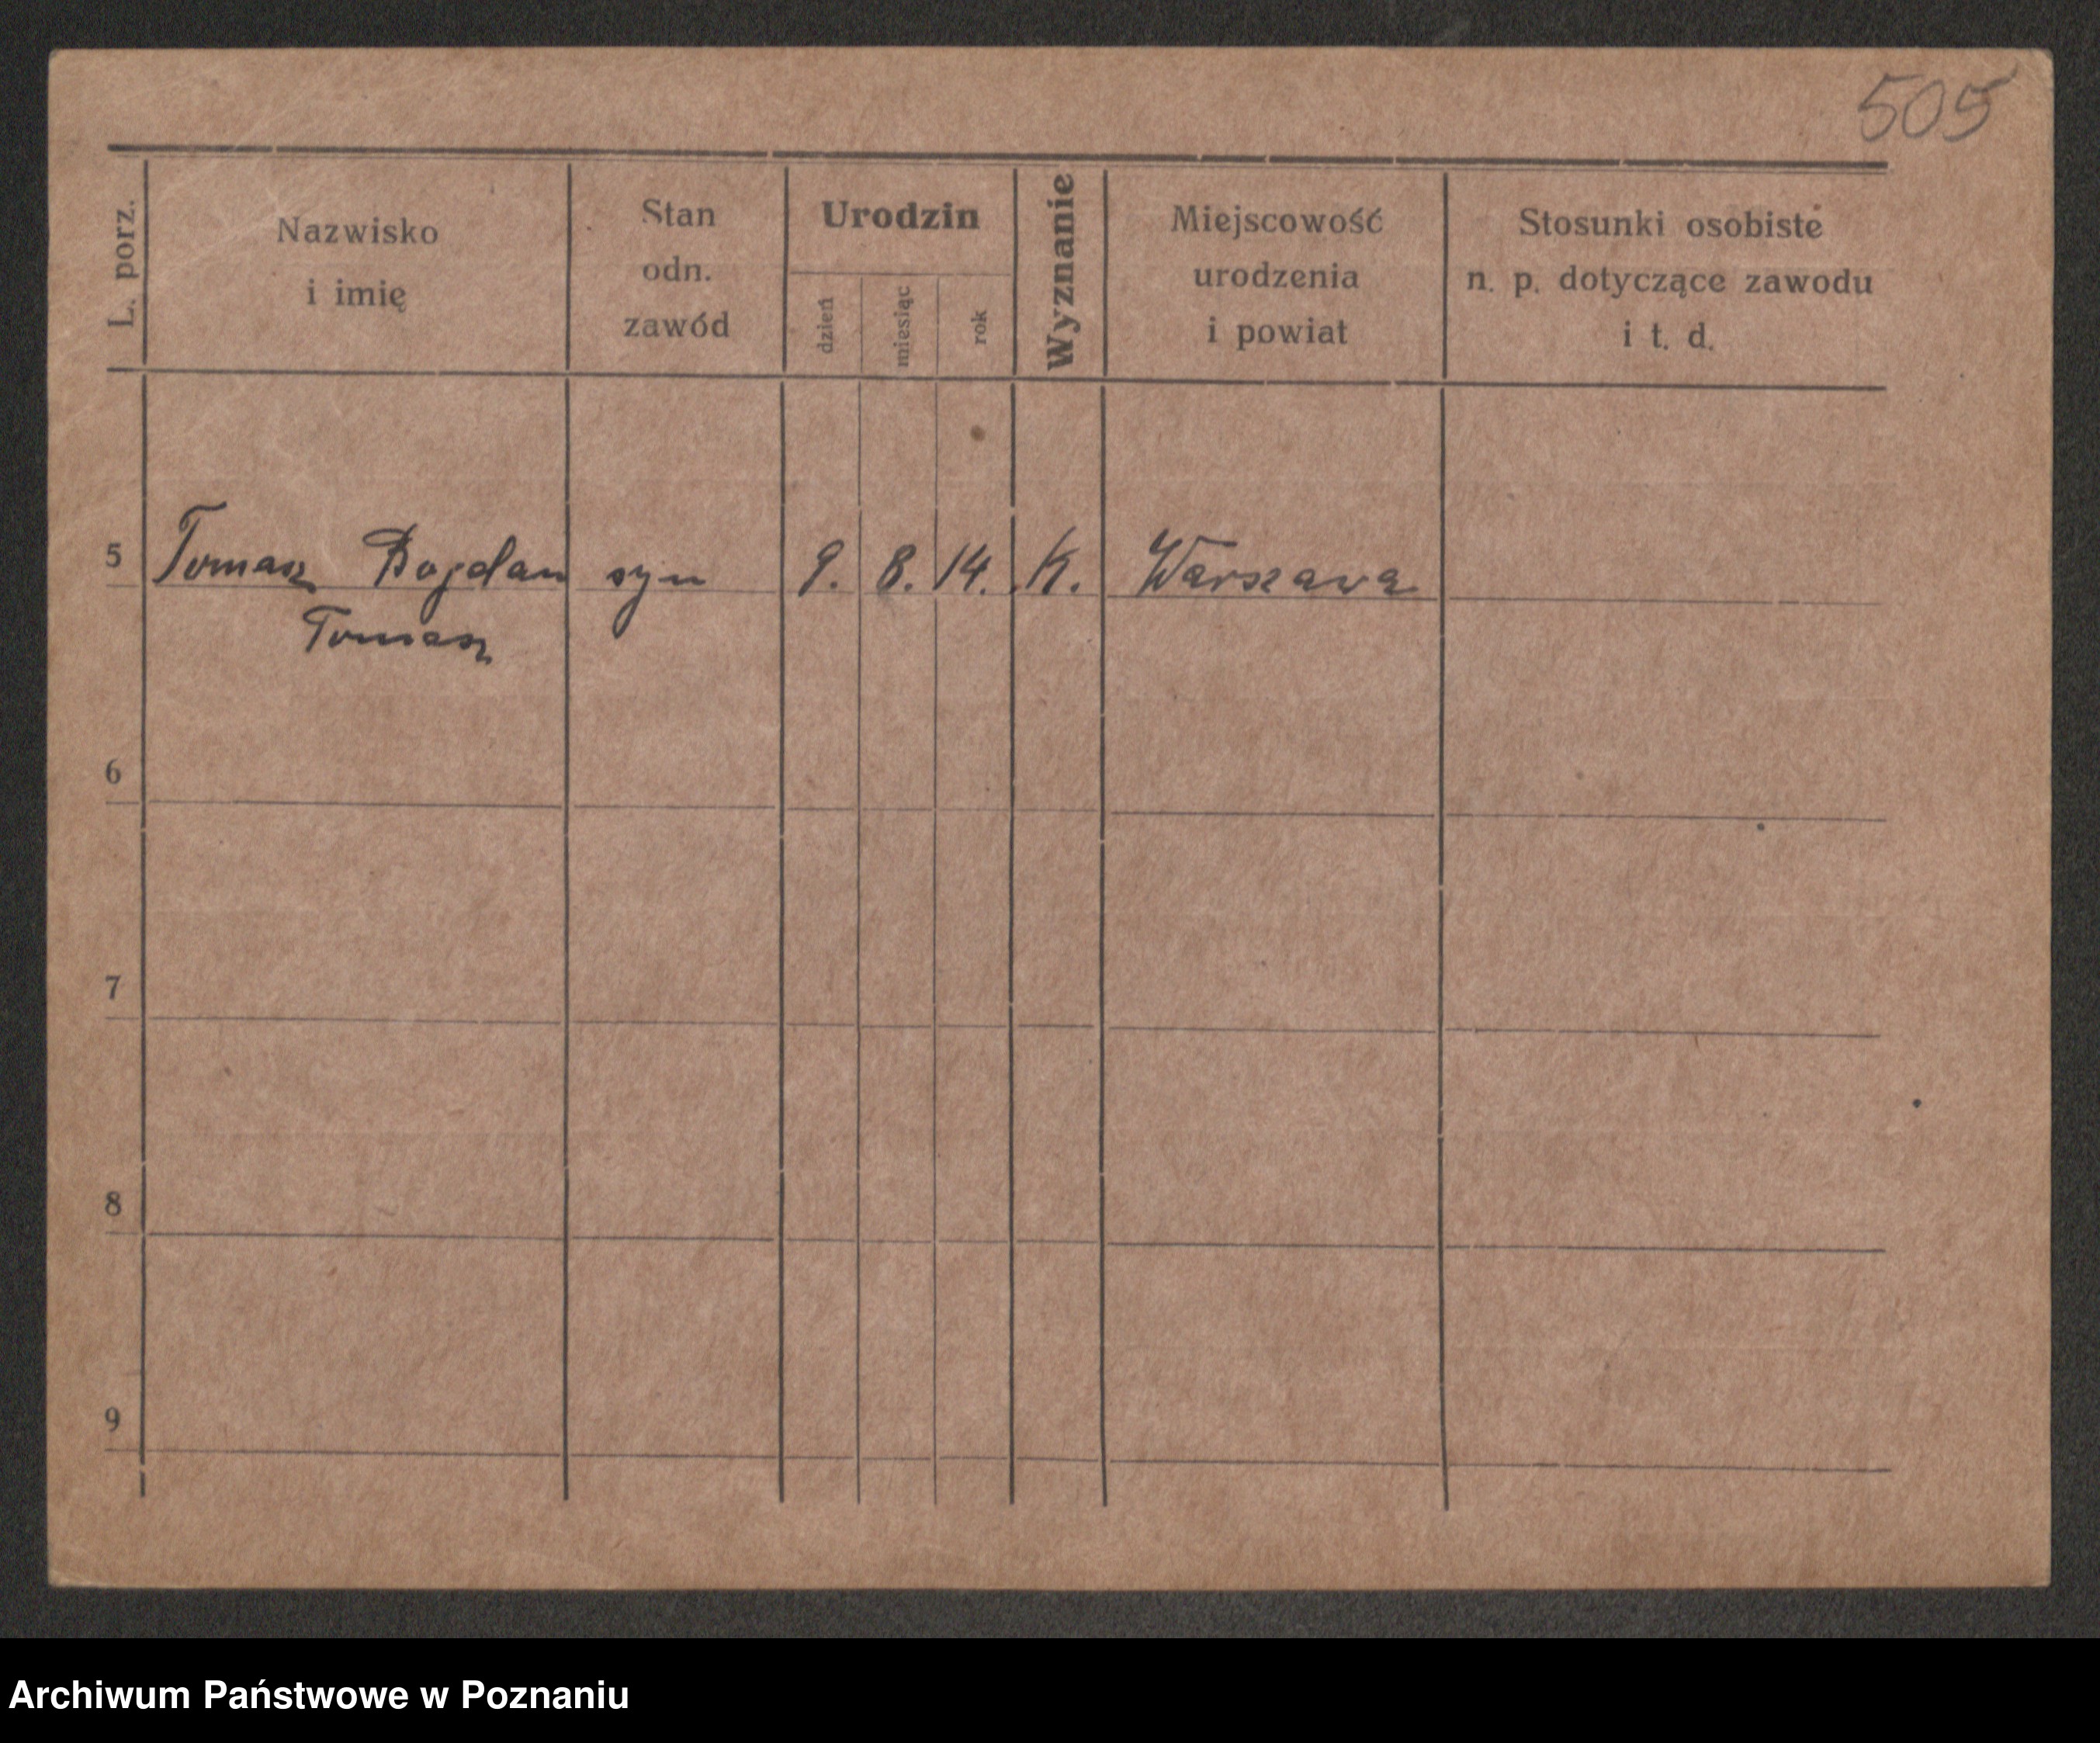 505
L. porz.
Nazwisko
i imię
Stan
odn.
zawód
Urodzin
dzień
miesiąc
rok
Wyznanie
Miejscowość
urodzenia
i powiat
Stosunki osobiste
n. p. dotyczące zawodu
i t. d.
5 Tomasz Bogdan syn 9. 8. 14. K. Warszawa
Tomasz
6
7
8
9
Archiwum Państwowe w Poznaniu